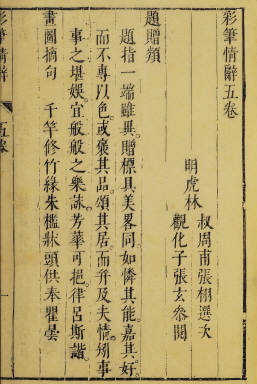 彩筆情辭五卷
明虎林
叔周甫張栩選次
觀化子張玄參閱
題贈類
題指一端雖異。贈標具美畧同。如憐其能。嘉其好。
而不專以色。或褒其品。頌其居。而幷及夫情。矧事
事之堪娱。宜般般之樂詠。芳華可挹。律呂斯諧。
畫圖摘句 千竿修竹綠朱檻牀頭供奉瞿曇
彩筆情辭 五卷 一